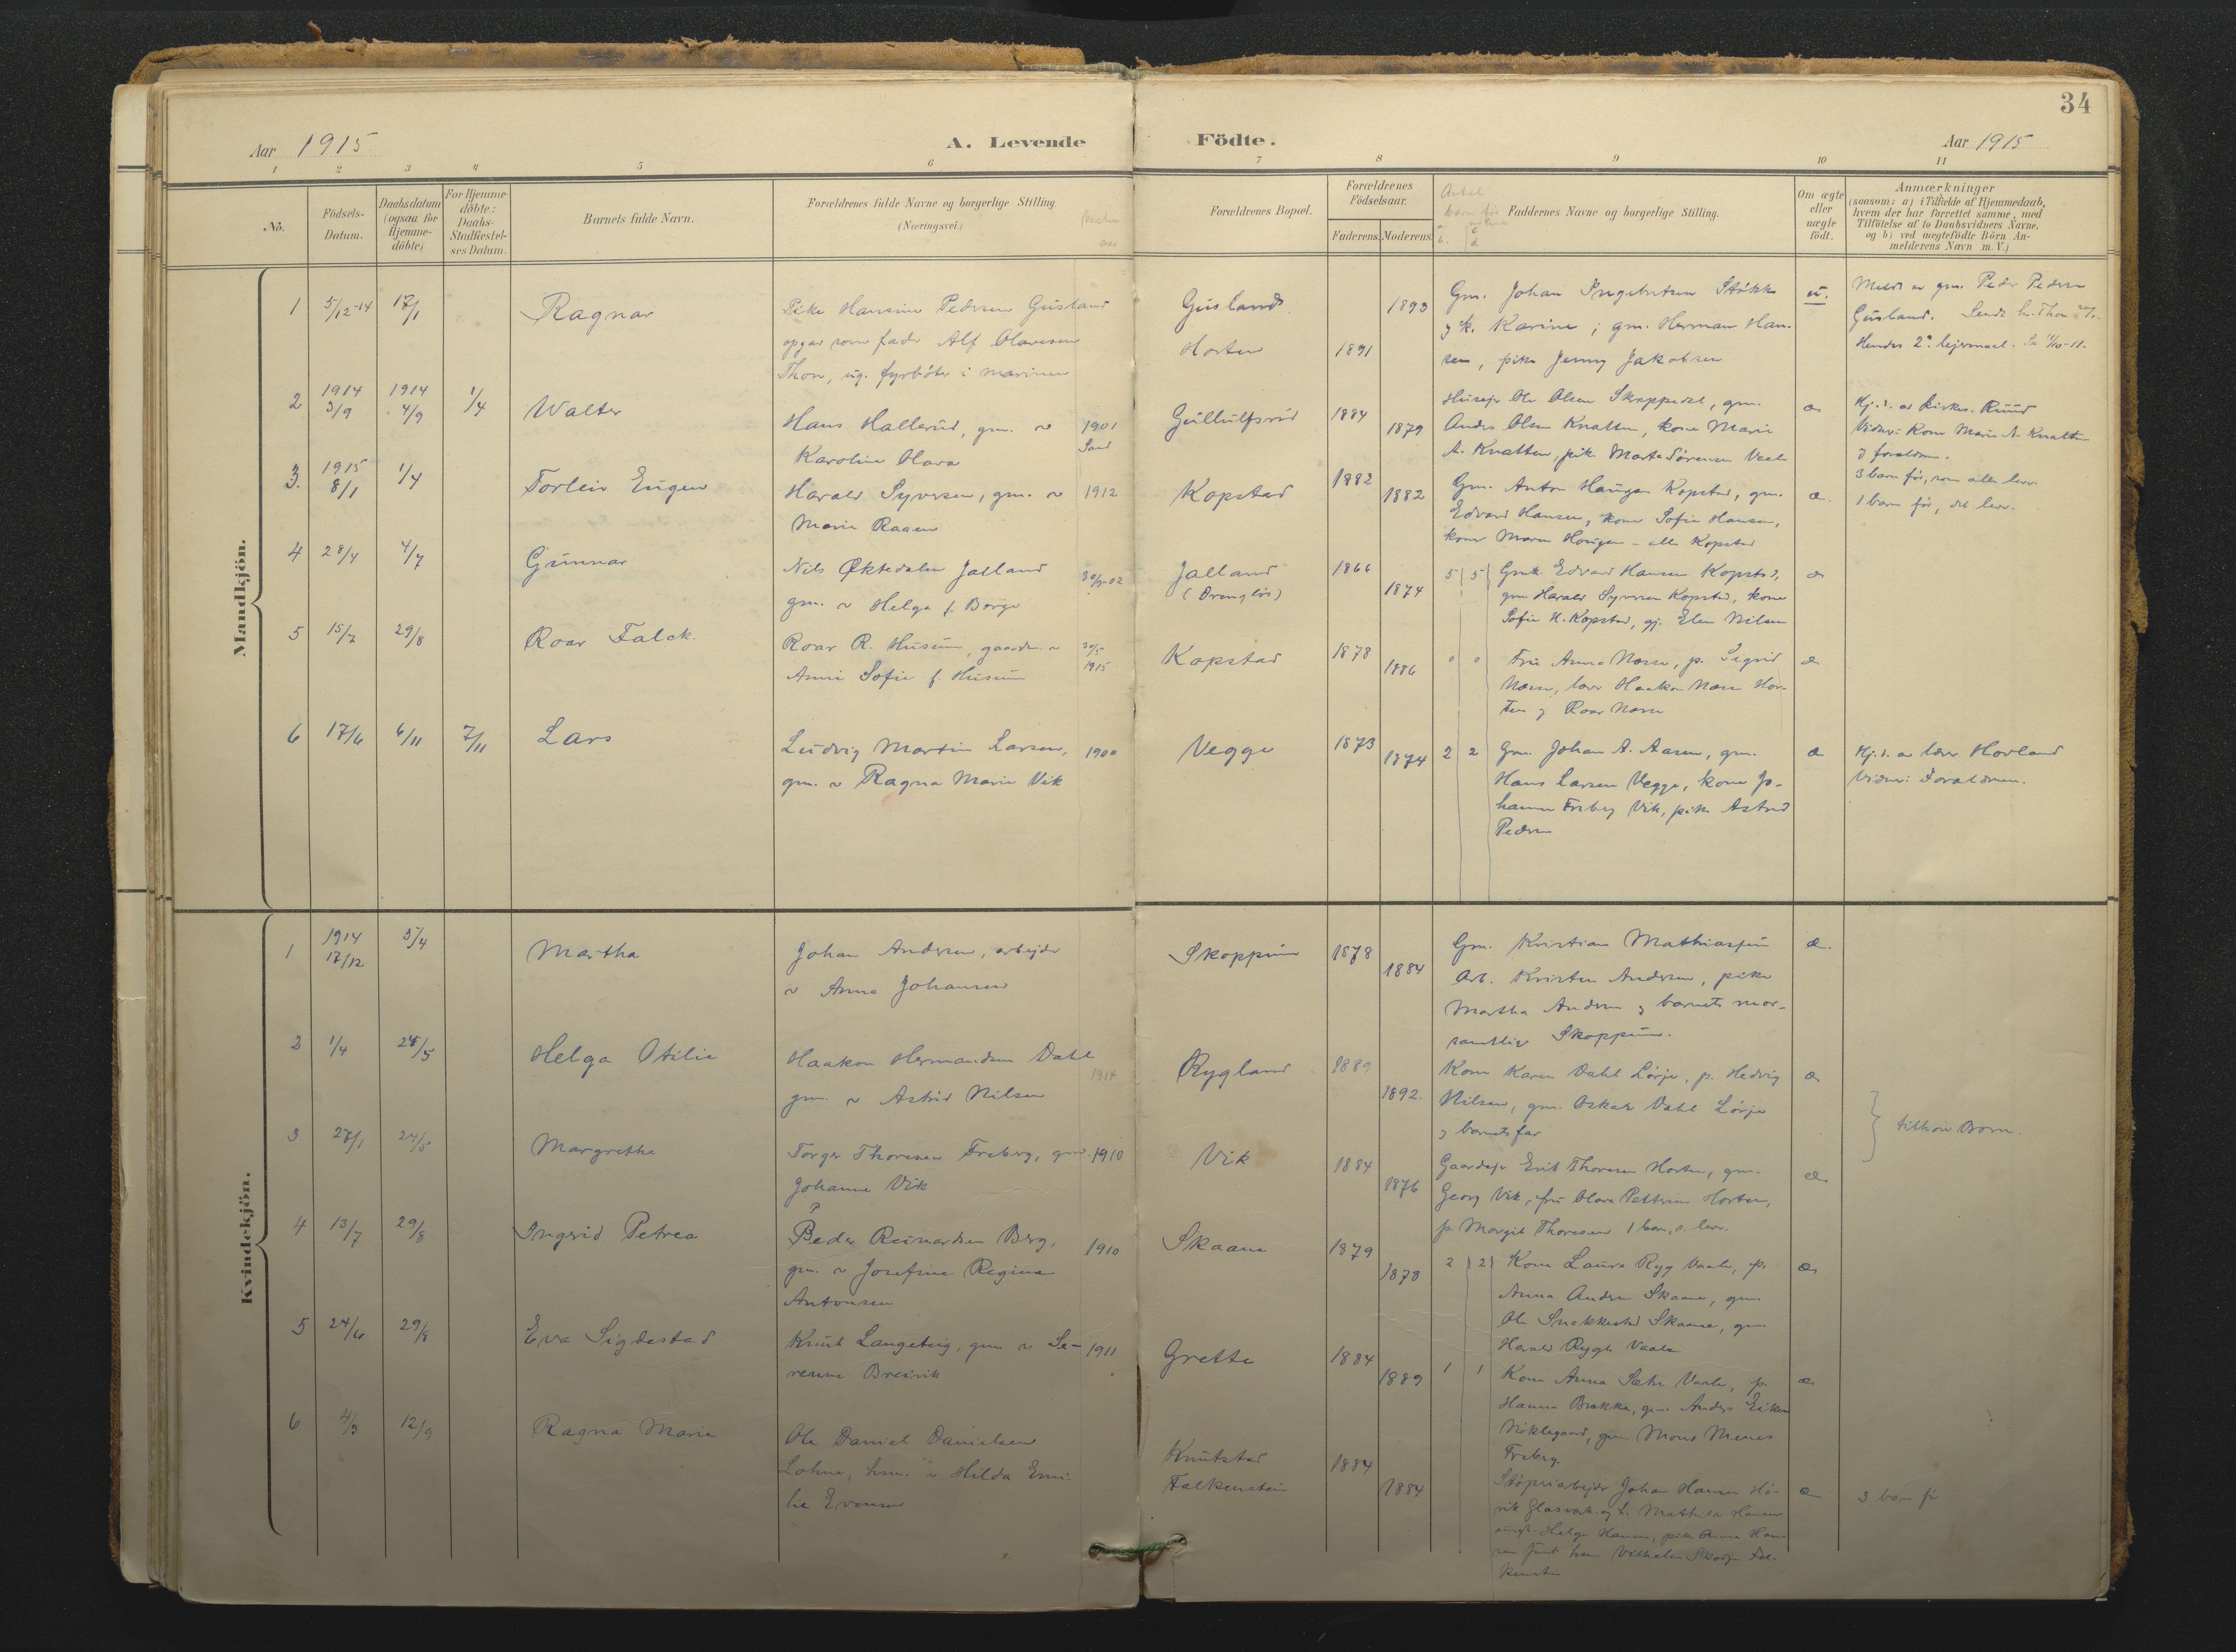 34
Aar 1915
A. Levende Födte.
Aar 1915
1 2 3 4 5 6 7 8 9 10 11
No.
Födsels-
Datum.
Daabsdatum
(ogsaa for
Hjemme-
döbte)
For Hjemme-
döbte:
Daabs-
Stadfæstel-
ses Datum.
Barnets fulde Navn.
Forældrenes fulde Navne og borgerlige Stilling
(Næringsvei.)
Forældrenes Bopæl.
Forældrenes
Födselsaar.
Faderens. Moderens.
Antal
barn før
Faddernes Navne og borgerlige Stilling.
Om ægte
eller
uægte
födt.
Anmærkninger
(saasom: a) i Tilfælde af Hjemmedaab,
hvem der har forrettet samme, med
Tilföielse af to Daabsvidners Navne,
og b) ved uægtefödte Börn An-
melderens Navn m. V.)
Mandkjön.
1 5/12-14 17/1 Ragnar
Pike Hansine Pedersen Gusland
opgav som fader Alf Olavesen
Thon, ug. fyrbøter i marinen
Gusland
Horten
1891 1893
Gm. Johan Ingebretsen Støkke
og k. Karine; gm. Herman Han-
sen, pike Jenny Jakobsen
u.
Meldt av gm. Peder Pedersen
Gusland.
Hendes 2. leiermaal.
2 1914 3/9 1914 4/9 1/4 Walter
Hans Hallerud, gm. 1901
Karoline Olava
Gullulfsrød 1884 1879
Ole Olsen Skoppedal, gm.
Anders Olsen Knatten, kone Marie
A. Knatten, pik Marta Sørensen Vaale
æ
Hj.d. av kirkes. Ruud
Vidner: Kone Marie A. Knatten
3 barn før, som alle lever
3. 1915 8/1 1/4 Torleiv Eugen
Harald Syversen, gm. 1912
Marie Raaen
Kopstad 1882 1882
Gm. Anton Haugen Kopstad, gm.
Edvard Hansen, kone Sofie Hansen,
kone Maren Haugen - alle Kopstad
æ.
1 barn før, det lever.
4 28/4 4/7 Gunnar
Nils Øktedalen Jalland
gm. Helga f. Borge
Jalland
1866 1874 5 5
Gmk. Edvard Hansen Kopstad,
gm Harald Syversen Kopstad, kone
Sofie H. Kopstad, gj. Elen Nilsen
æ
5 15/7 29/8 Roar Falck.
Roar R. Husum, gaardm. 30/5 1915
Anni Sofie f. Husum
Kopstad 1878 1886 0 0
Fru Anna Næss, p. Sigrid
Næss, Haakon Næss Hor-
ten og Roar Næss
æ
6 17/6 6/11 7/11 Lars
Ludvig Martin Larsen, 1900
gm. Ragna Marie Vik
Vegge 1873 1874 2 2
Gm. Johan A. Aasen, gm.
Hans Larsen Vegge, kone Jo-
hanne Freberg Vik, pike Astrid
Pedersen
æ
Hj.d. av lærer Hovland
Vidner: Forældrene.
Kvindekjön.
1 1914 17/12 5/4 Martha
Johan Andersen, arbejder
Anna Johansen
Skoppum 1878 1884
Gm. Kristian Mathiassen
Arb. Kristen Andersen, pike
Martha Andersen og barnets mor-
samtlige Skoppum.
æ.
2 1/4 24/5 Helga Otilie
Haakon Hermandsen Dahl 1914
gm. Astrid Nilsen
Rygland 1889 1892.
Kone Karen Dahl Lørje, p. Hedvig
Nilsen, gm. Oskar Dahl Lørje
og barnets far
æ
3 27/1 24/5 Margrethe
Torger Thoresen Freberg, gm. 1910
Johanne Vik
Vik 1884 1876
Gaardejer Erik Thoresen Horten, gm.
Georg Vik, fru Olava Pettersen Horten,
p. Margit Thoresen 1 barn, s. lever.
æ.
4 13/7 29/8 Ingerid Petrea
Peder Reinardsen Berg, 1910
gm. Josefine Regine
Antonsen
Skaane 1879 1878 2 2
Kone Laura Ryg Vaale, p.
Anna Andersen Skaane, gm.
Ole Snekkestad Skaane, gm.
Harald Rygh Vaale
æ
5 24/6 29/8 Eva Sigdestad
Knut Langeteig, gm Se- 1911
rene Breivik
Grette 1884 1889 1 1
Kone Anna Sæther Vaale, p.
Hanna Brekke, gm. Anders Eiken
Nøklegaard, gm Mons Menes
Freberg.
æ
6 4/3 12/9 Ragna Marie
Ole Daniel Danielsen
Lohne, hsm. Hilda Emi-
lie Evensen
Knutstad
Falkensten
1884 1884
Støperiarbejder Johan Hansen Hø-
vik Glasverk og h. Mathilde Hansen
Helge Hansen, pike Anna Han-
sen Vilhelm Skorge Fal-
kensten
æ
3 barn før